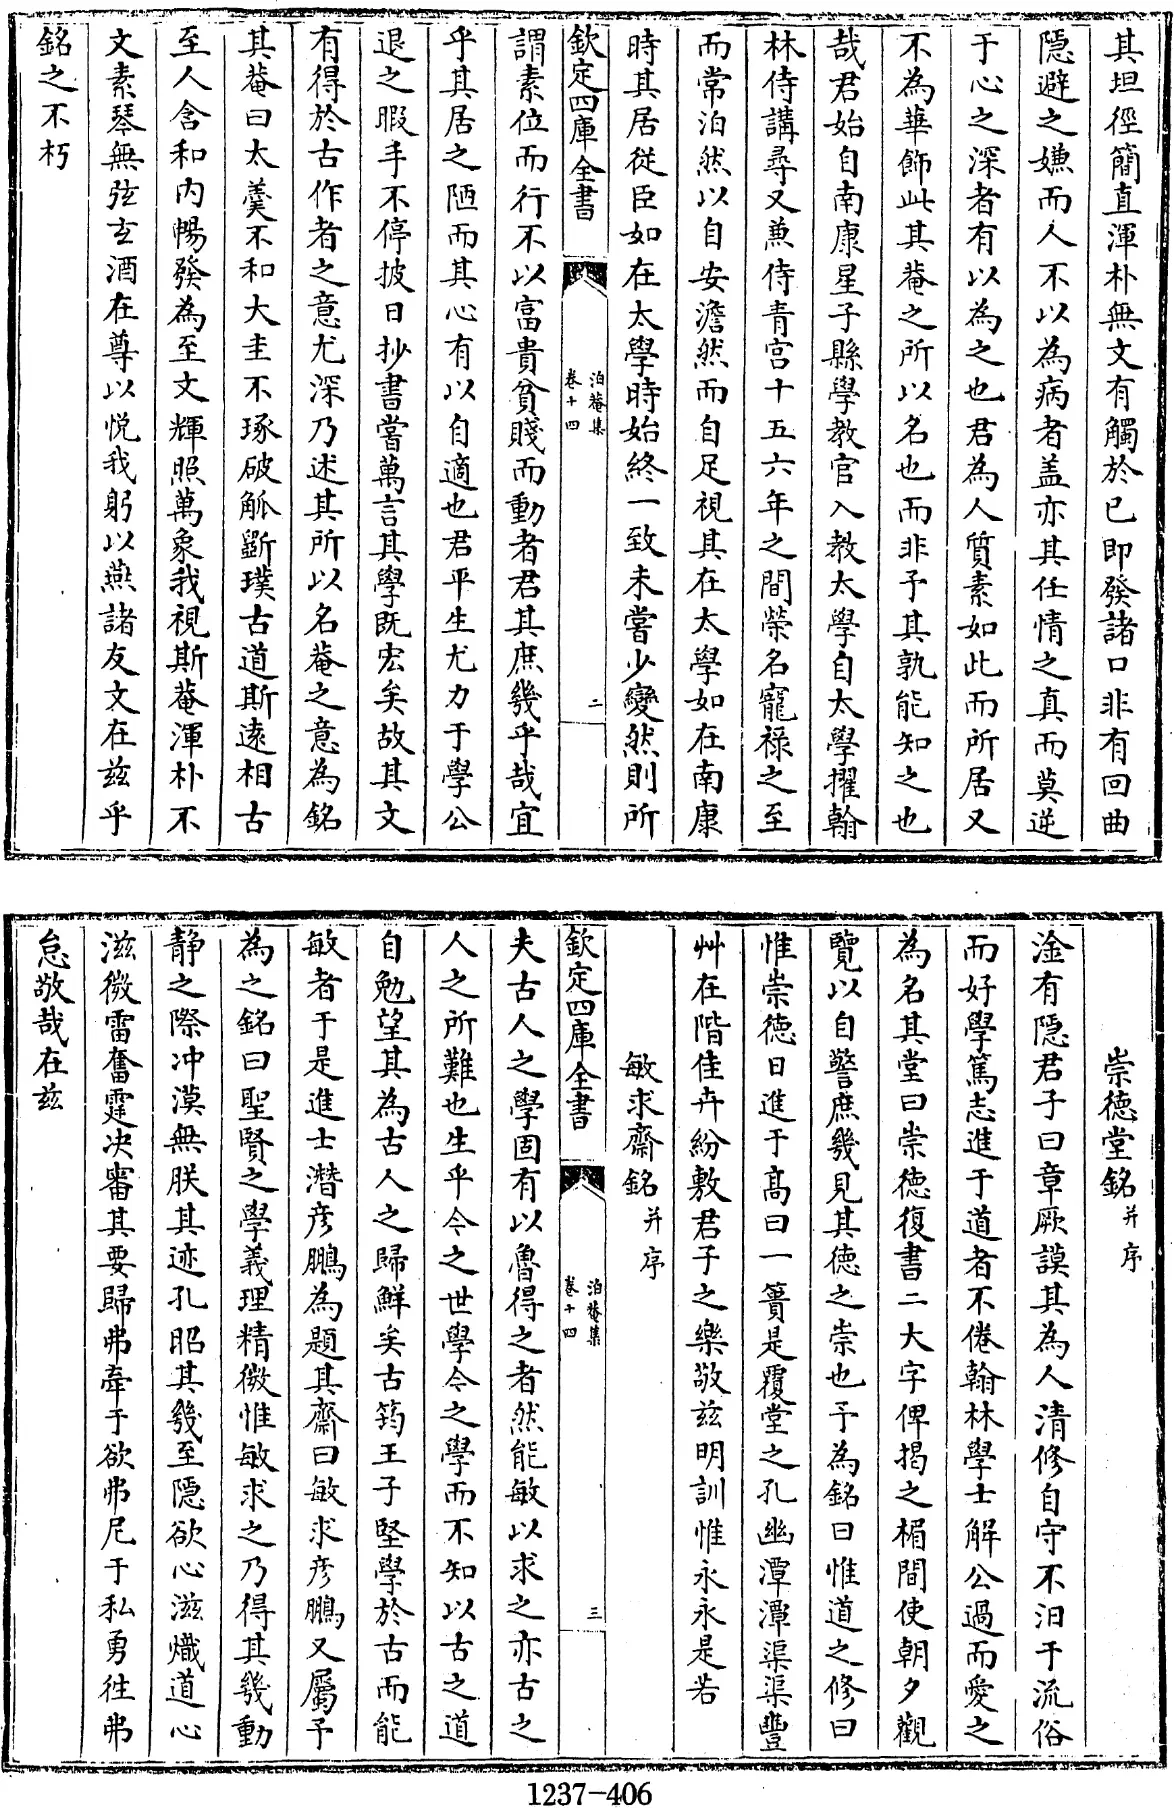 其坦徑簡直渾朴無文有觸於已即發諸口非有回曲
隠避之嫌而人不以為病者盖亦其任情之真而莫逆
于心之深者有以為之也君為人質素如此而所居又
不為華飾此其菴之所以名也而非予其孰能知之也
哉君始自南康星子縣學教官入教太學自太學擢翰
林侍講尋又兼侍青宫十五六年之間榮名寵祿之至
而常泊然以自安澹然而自足視其在太學如在南康
時其居從臣如在太學時始終一致未嘗少變然則所
欽定四庫全書
泊菴集
卷十四
二
謂素位而行不以富貴貧賤而動者君其庶幾乎哉宜
乎其居之陋而其心有以自適也君平生尤力于學公
退之暇手不停披日抄書嘗萬言其學既宏矣故其文
有得於古作者之意尤深乃述其所以名菴之意為銘
其菴曰太羹不和大圭不琢破觚斵璞古道斯逺相古
至人含和内暢發為至文輝照萬象我視斯菴渾朴不
文素琴無弦玄酒在尊以悦我躬以燕諸友文在兹乎
銘之不朽
崇徳堂銘并序
淦有隠君子曰章厥謨其為人清修自守不汨于流俗
而好學篤志進于道者不倦翰林學士解公過而愛之
為名其堂曰崇徳復書二大字俾揭之楣間使朝夕觀
覽以自警庶幾見其徳之崇也予為銘曰惟道之修曰
惟崇徳日進于髙曰一簣是覆堂之孔幽潭潭渠渠豐
艸在階佳卉紛敷君子之樂敬兹明訓惟永永是若
敏求齋銘并序
欽定四庫全書
泊菴集
卷十四
三
夫古人之學固有以魯得之者然能敏以求之亦古之
人之所難也生乎今之世學今之學而不知以古之道
自勉望其為古人之歸鮮矣古筠王子堅學於古而能
敏者于是進士潛彦鵬為題其齋曰敏求彦鵬又屬予
為之銘曰聖賢之學義理精微惟敏求之乃得其幾動
静之際冲漠無朕其迹孔昭其幾至隠欲心滋熾道心
滋微雷奮霆决審其要歸弗牽于欲弗尼于私勇徃弗
怠敬哉在兹
1237-406